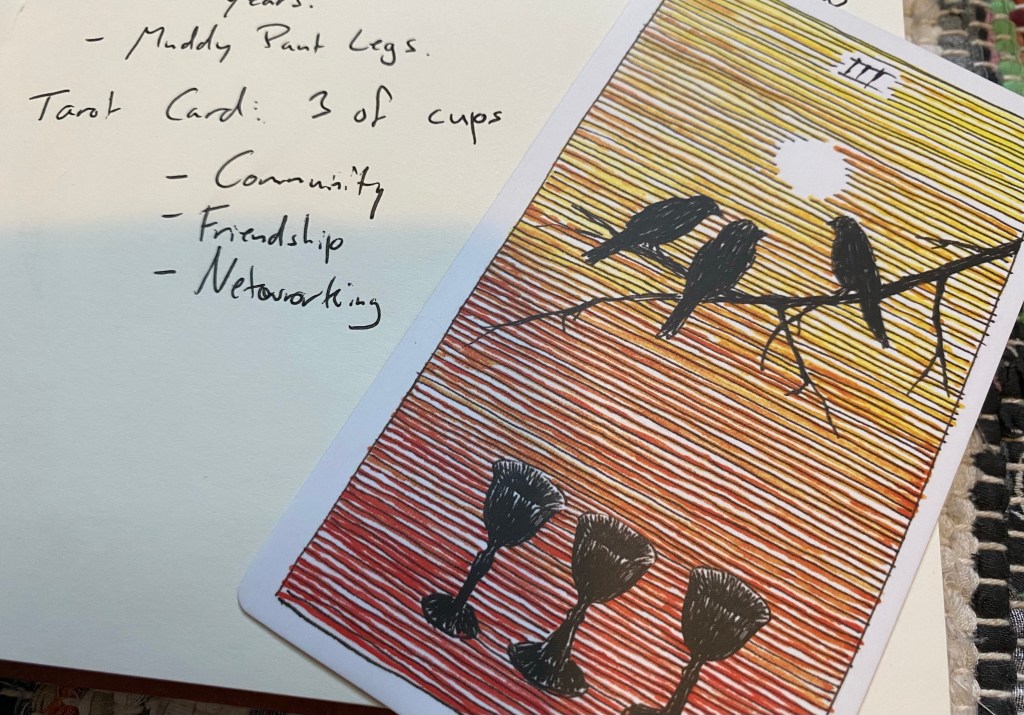 years.
- Muddy Pant Legs.
Tarot Card: 3 of cups
- Community
- Friendship
- Networking
III